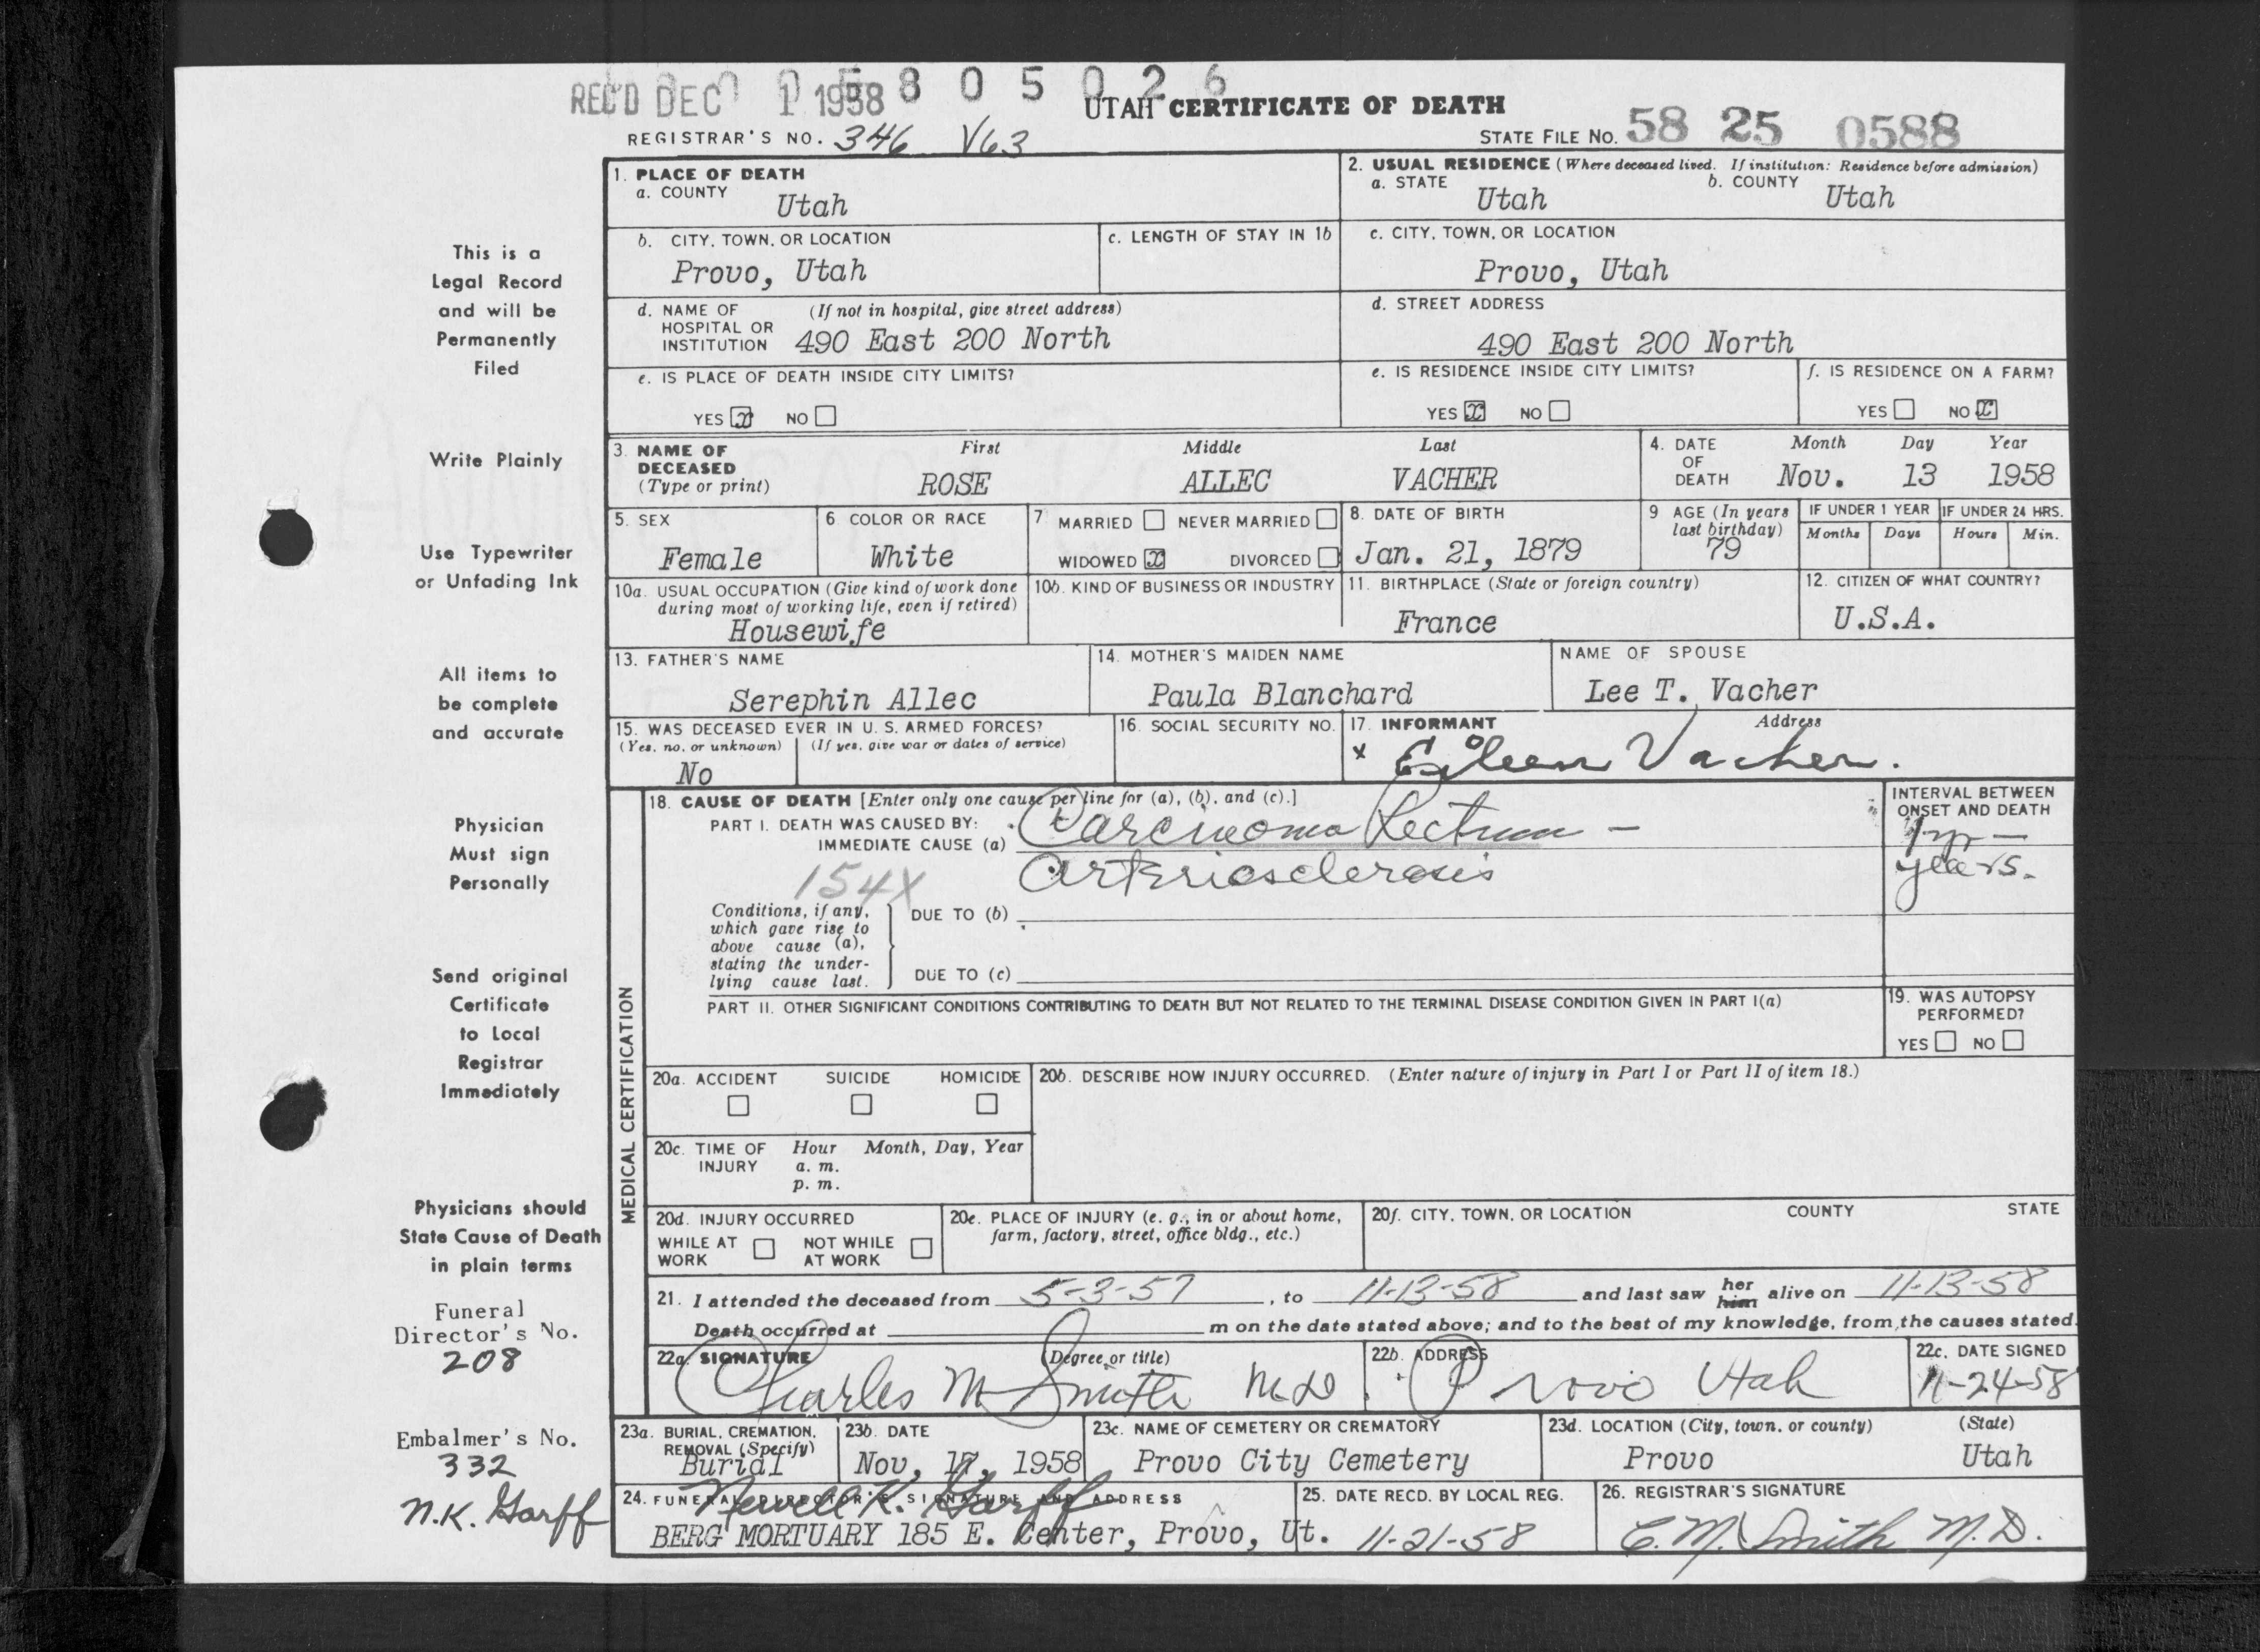 REC'D DEC 1 1958 5 8 0 5 0 2 6
UTAH CERTIFICATE OF DEATH
REGISTRAR'S NO. 346 V63
STATE FILE NO. 58 25 0588
1. PLACE OF DEATH
a. COUNTY
Utah
2. USUAL RESIDENCE (Where deceased lived. If institution: Residence before admission)
a. STATE
Utah
b. COUNTY
Utah
b. CITY, TOWN, OR LOCATION
Provo, Utah
c. LENGTH OF STAY IN 1b
c. CITY, TOWN, OR LOCATION
Provo, Utah
d. NAME OF HOSPITAL OR INSTITUTION
(If not in hospital, give street address)
490 East 200 North
d. STREET ADDRESS
490 East 200 North
e. IS PLACE OF DEATH INSIDE CITY LIMITS?
YES x NO
e. IS RESIDENCE INSIDE CITY LIMITS?
YES x NO
f. IS RESIDENCE ON A FARM?
YES NO x
3. NAME OF DECEASED
(Type or print)
First
ROSE
Middle
ALLEC
Last
VACHER
4. DATE OF DEATH
Month Day Year
Nov. 13 1958
5. SEX
Female
6 COLOR OR RACE
White
7 MARRIED NEVER MARRIED
WIDOWED x DIVORCED
8. DATE OF BIRTH
Jan. 21, 1879
9 AGE (In years last birthday)
79
IF UNDER 1 YEAR
Months Days
IF UNDER 24 HRS.
Hours Min.
10a. USUAL OCCUPATION (Give kind of work done during most of working life, even if retired)
Housewife
10b. KIND OF BUSINESS OR INDUSTRY
11. BIRTHPLACE (State or foreign country)
France
12. CITIZEN OF WHAT COUNTRY?
U.S.A.
13. FATHER'S NAME
Serephin Allec
14. MOTHER'S MAIDEN NAME
Paula Blanchard
NAME OF SPOUSE
Lee T. Vacher
15. WAS DECEASED EVER IN U. S. ARMED FORCES?
(Yes, no, or unknown) (If yes, give war or dates of service)
No
16. SOCIAL SECURITY NO.
17. INFORMANT Address
x Eileen Vacher.
MEDICAL CERTIFICATION
18. CAUSE OF DEATH [Enter only one cause per line for (a), (b), and (c).]
PART I. DEATH WAS CAUSED BY:
IMMEDIATE CAUSE (a)
Carcinoma Rectum -
Arteriosclerosis
154X
INTERVAL BETWEEN ONSET AND DEATH
years.
Conditions, if any, which gave rise to above cause (a), stating the underlying cause last.
DUE TO (b)
DUE TO (c)
PART II. OTHER SIGNIFICANT CONDITIONS CONTRIBUTING TO DEATH BUT NOT RELATED TO THE TERMINAL DISEASE CONDITION GIVEN IN PART I(a)
19. WAS AUTOPSY PERFORMED?
YES NO
20a. ACCIDENT SUICIDE HOMICIDE
20b. DESCRIBE HOW INJURY OCCURRED. (Enter nature of injury in Part I or Part II of item 18.)
20c. TIME OF INJURY
Hour Month, Day, Year
a. m.
p. m.
20d. INJURY OCCURRED
WHILE AT WORK NOT WHILE AT WORK
20e. PLACE OF INJURY (e. g., in or about home, farm, factory, street, office bldg., etc.)
20f. CITY, TOWN, OR LOCATION COUNTY STATE
21. I attended the deceased from 5-3-57, to 11-13-58 and last saw her him alive on 11-13-58
Death occurred at m on the date stated above; and to the best of my knowledge, from the causes stated.
22a. SIGNATURE (Degree or title)
Charles M Smith M.D.
22b. ADDRESS
Provo Utah
22c. DATE SIGNED
11-24-58
23a. BURIAL, CREMATION, REMOVAL (Specify)
Burial
23b. DATE
Nov, 17, 1958
23c. NAME OF CEMETERY OR CREMATORY
Provo City Cemetery
23d. LOCATION (City, town, or county) (State)
Provo Utah
24. FUNERAL DIRECTOR'S SIGNATURE AND ADDRESS
Newell K. Garff
BERG MORTUARY 185 E. Center, Provo, Ut.
25. DATE RECD. BY LOCAL REG.
11-21-58
26. REGISTRAR'S SIGNATURE
C.M. Smith M.D.
This is a
Legal Record
and will be
Permanently
Filed
Write Plainly
Use Typewriter
or Unfading Ink
All items to
be complete
and accurate
Physician
Must sign
Personally
Send original
Certificate
to Local
Registrar
Immediately
Physicians should
State Cause of Death
in plain terms
Funeral
Director's No.
208
Embalmer's No.
332
N.K. Garff